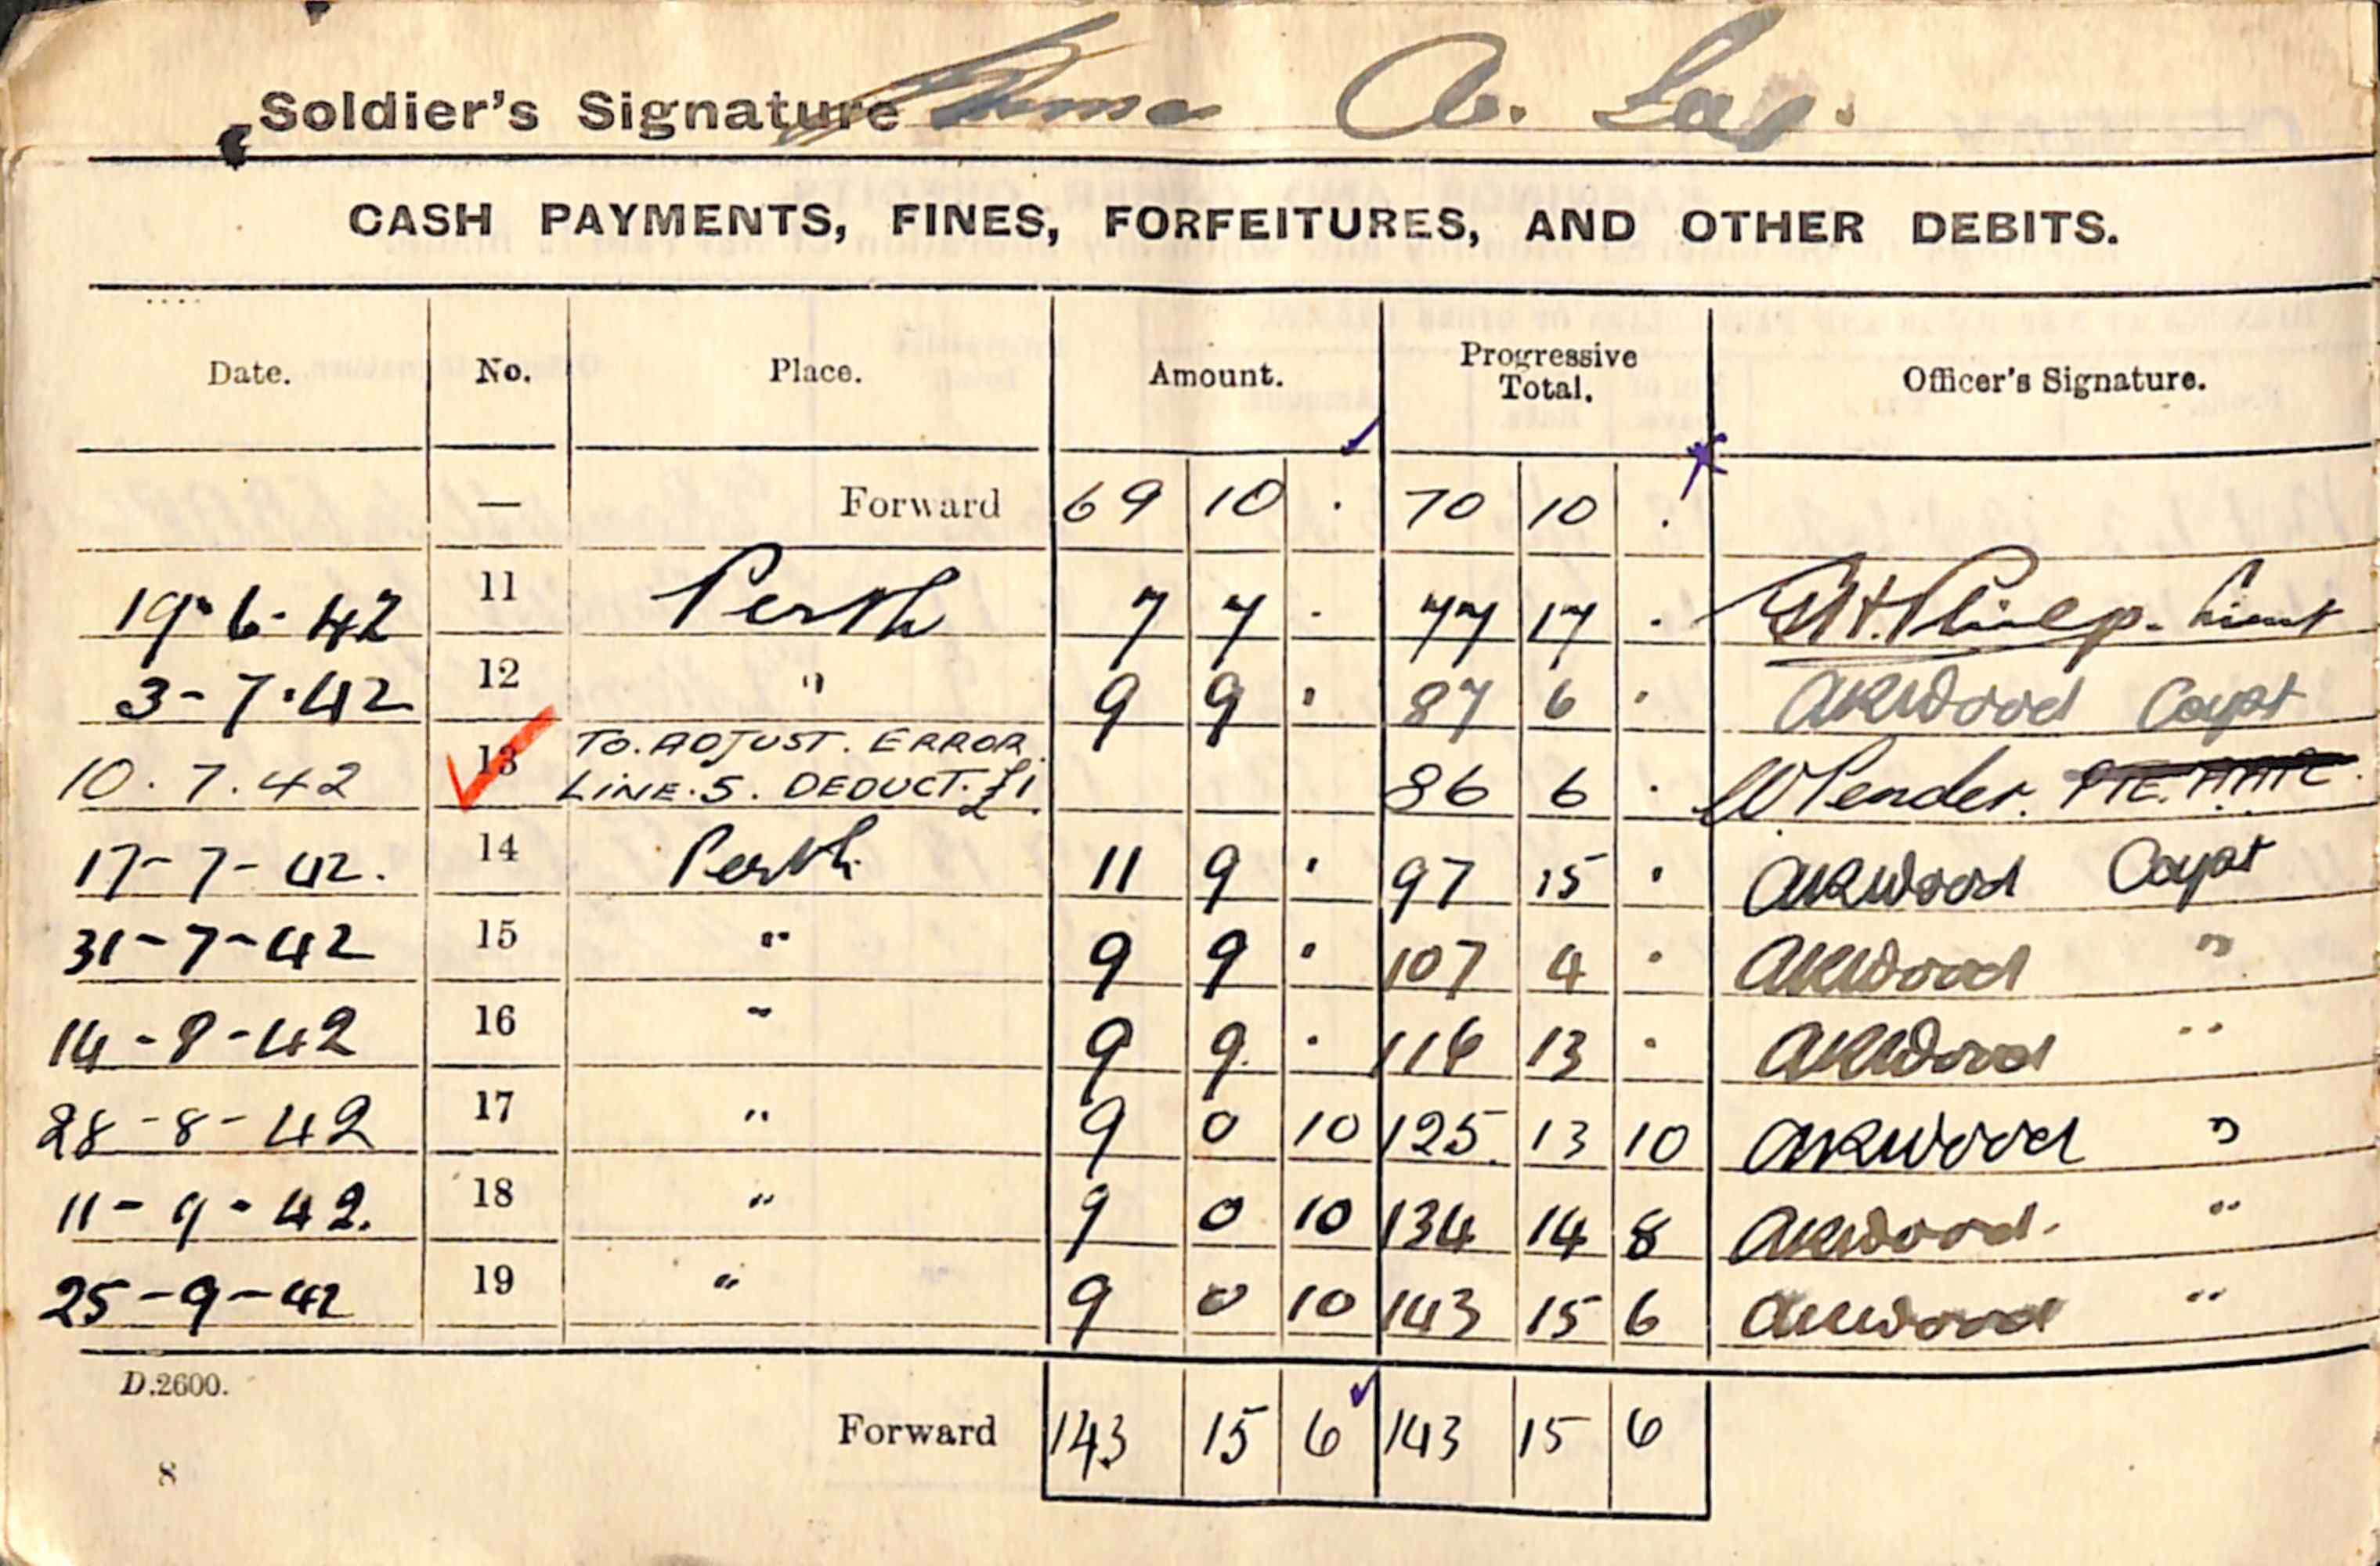 Soldier's Signature A. Lay.
CASH PAYMENTS, FINES, FORFEITURES, AND OTHER DEBITS.
Date. No. Place. Amount. Progressive Total. Officer's Signature.
— Forward 69 10 . 70 10 .
19-6-42 11 Perth 7 7 . 77 17 . Philp. Lieut
3-7-42 12 " 9 9 . 87 6 . AKWood Capt
10.7.42 13 TO.ADJUST.ERROR. LINE.5. DEDUCT.£1. 86 6 . W Pender.
17-7-42. 14 Perth 11 9 . 97 15 . AKWood Capt
31-7-42 15 " 9 9 . 107 4 . AKWood "
14-8-42 16 " 9 9 . 116 13 . AKWood "
28-8-42 17 " 9 0 10 125 13 10 AKWood "
11-9-42. 18 " 9 0 10 134 14 8 AKWood. "
25-9-42 19 " 9 0 10 143 15 6 AKWood "
D.2600.
Forward 143 15 6 143 15 6
8